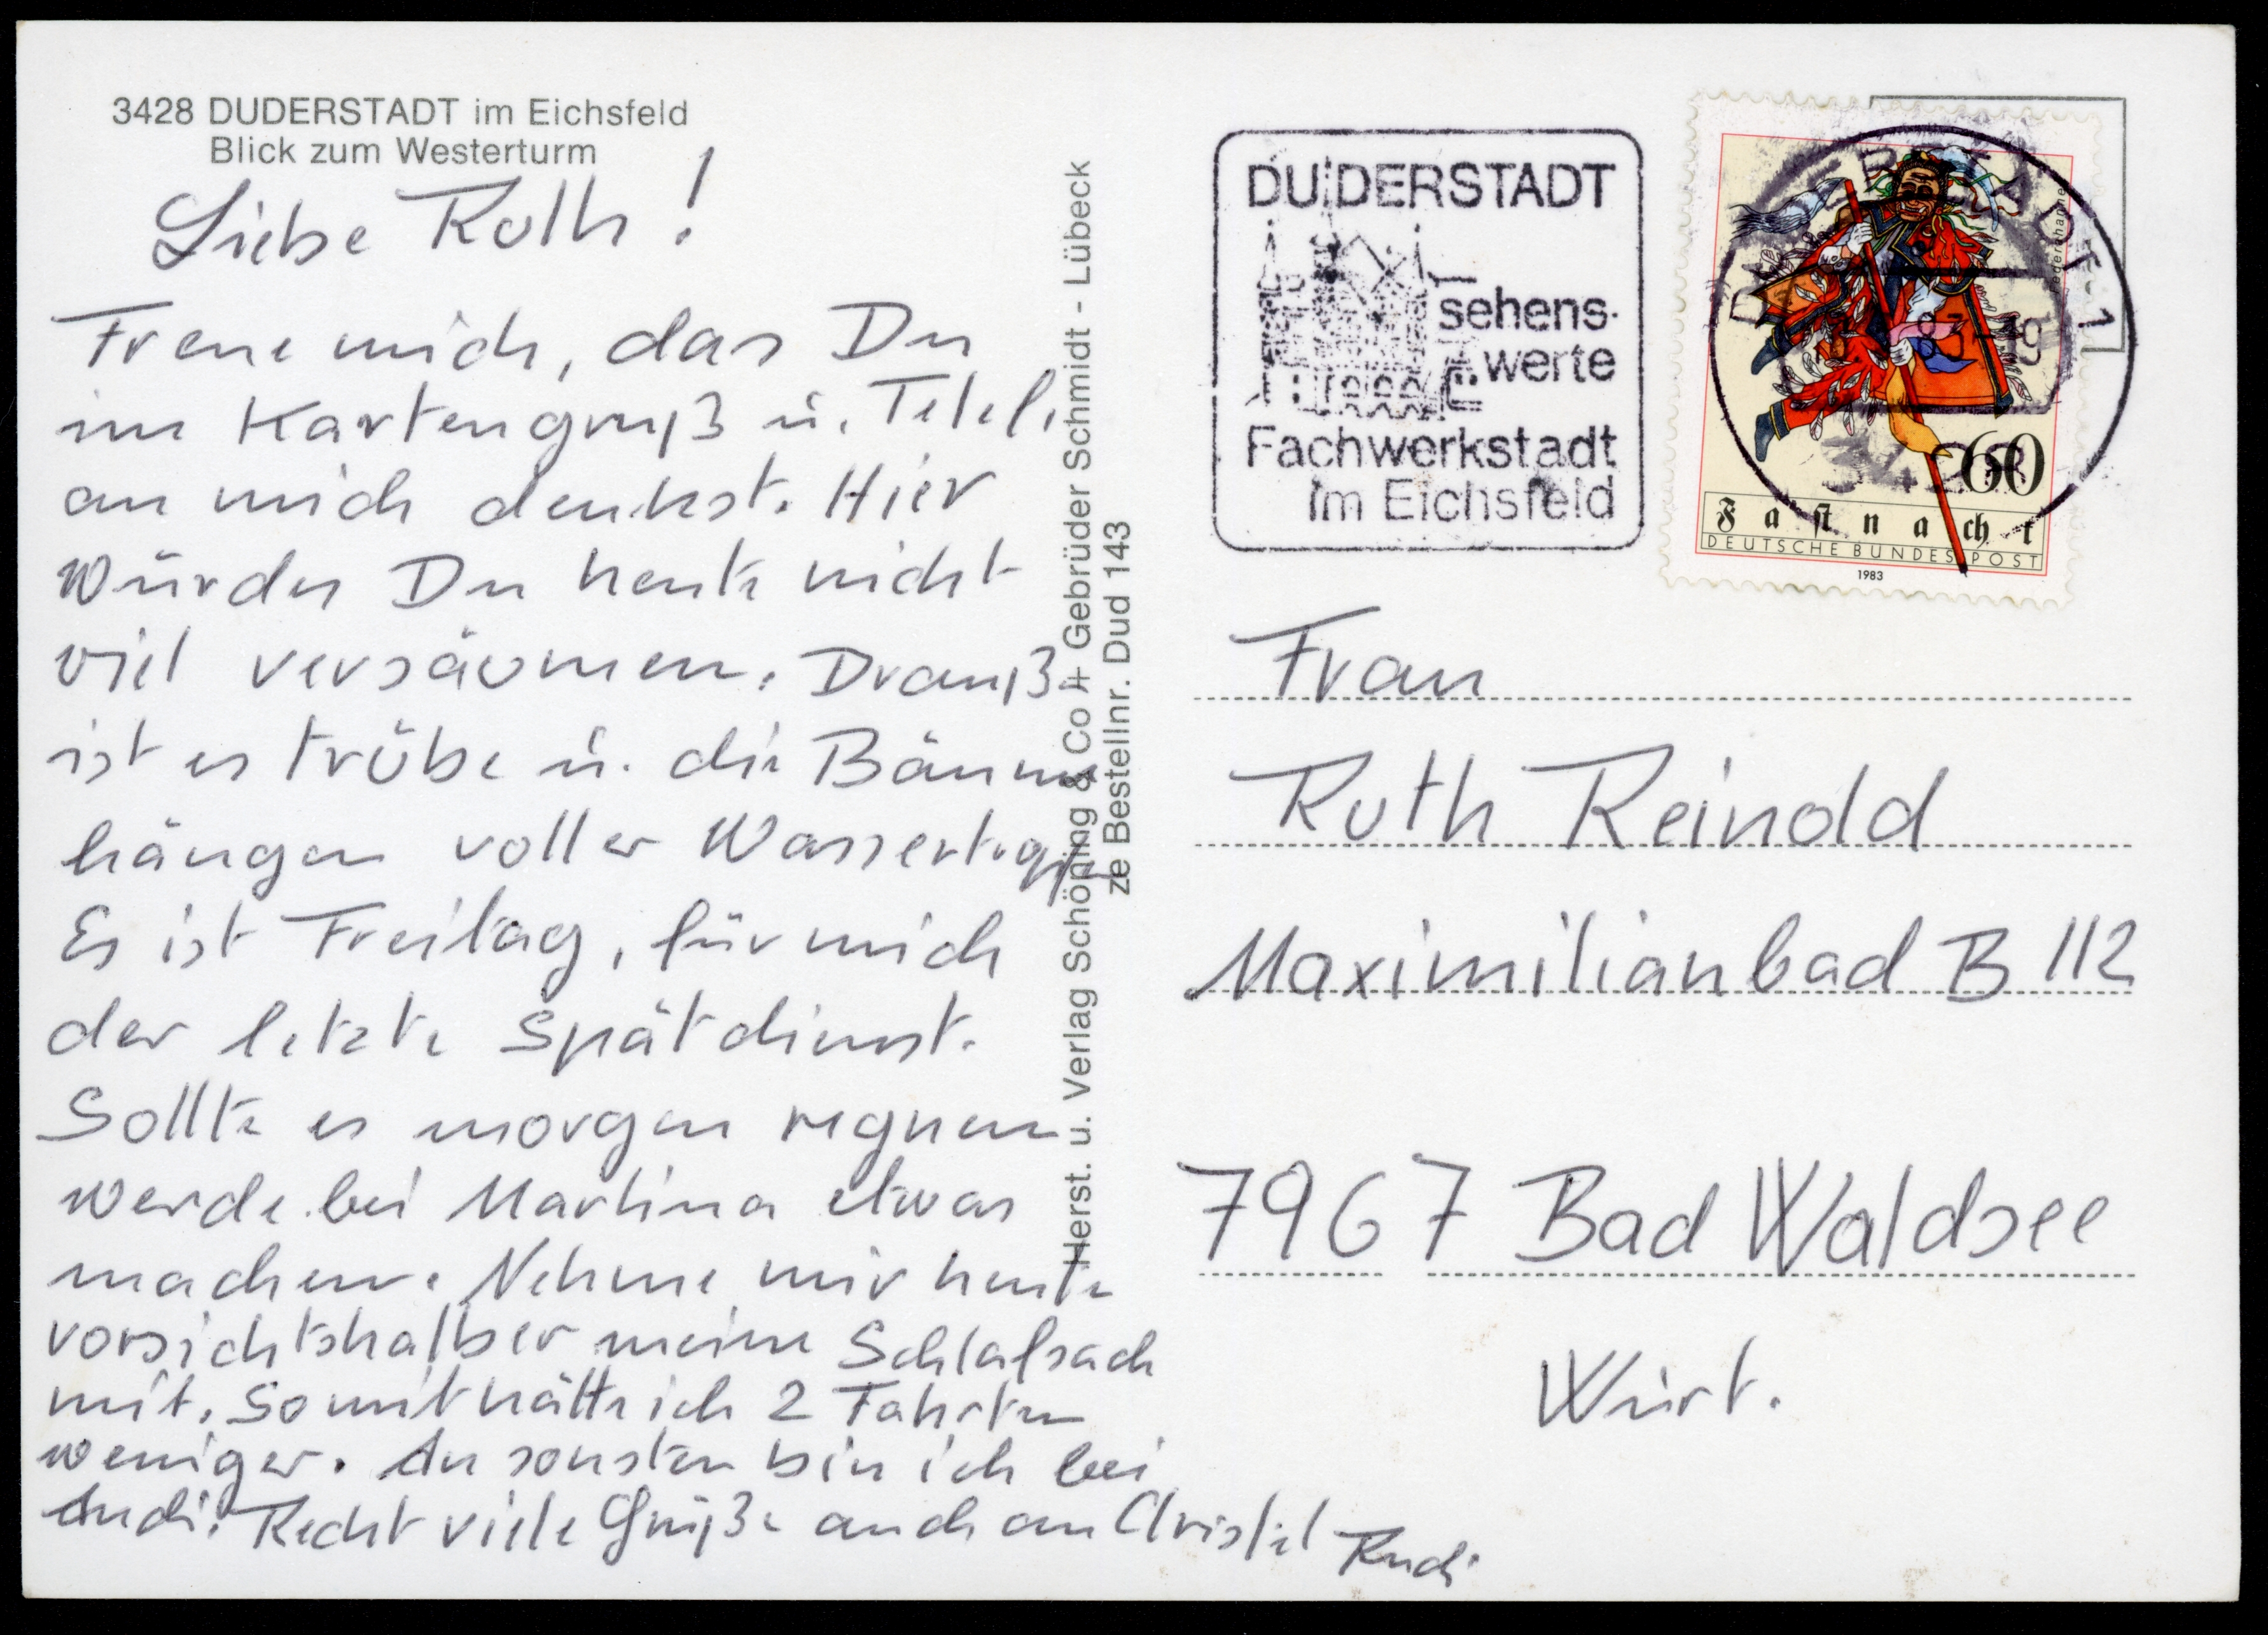 3428 DUDERSTADT im Eichsfeld
Blick zum Westerturm
Liebe Ruth!
Freue mich, das Du
im Kartengruß u. Telef.
an mich denkst. Hier
würdes Du heute nicht
viel versäumen. Drauß.
ist es trübe u. die Bäume
hängen voller Wassertropfen
Es ist Freitag, für mich
der letzte Spätdienst.
Sollte es morgen regnen
werde bei Martina etwas
machen. Nehme mir heute
vorsichtshalber meine Schlafsach
mit. Somit hätte ich 2 Fahrten
weniger. Ansonsten bin ich bei
Andi. Recht viele Grüße auch an Christel
Rudi
Herst. u. Verlag Schöning & Co + Gebrüder Schmidt - Lübeck
ze Bestellnr. Dud 143
DUDERSTADT
sehens-
werte
Fachwerkstadt
im Eichsfeld
60
Fastnacht
DEUTSCHE BUNDESPOST
1983
Frau
Ruth Reinold
Maximilianbad B 112
7967 Bad Waldsee
Würt.